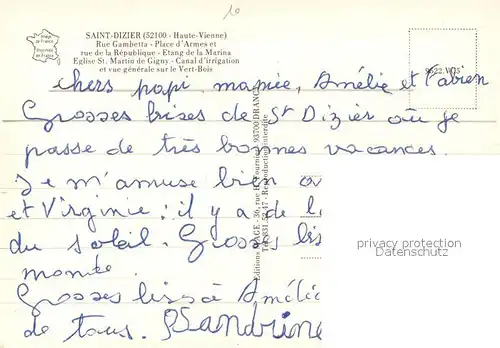 10
SAINT-DIZIER (52100 - Haute-Vienne)
Rue Gambetta - Place d'Armes et
rue de la République - Etang de la Marina
Eglise St. Martin de Gigny - Canal d'irrigation
et vue générale sur le Vert-Bois
Image de France
Imprimée en France
chers papi, mamie, Amélie et Fabien
Grosses bises de St Dizier où je
passe de très bonnes vacances.
Je m'amuse bien av
et Virginie; il y a de l
du soleil. Grosses bis
monde.
Grosses biss à Amélie
de tous. Sandrine
Reproduction interdite
privacy protection
Datenschutz